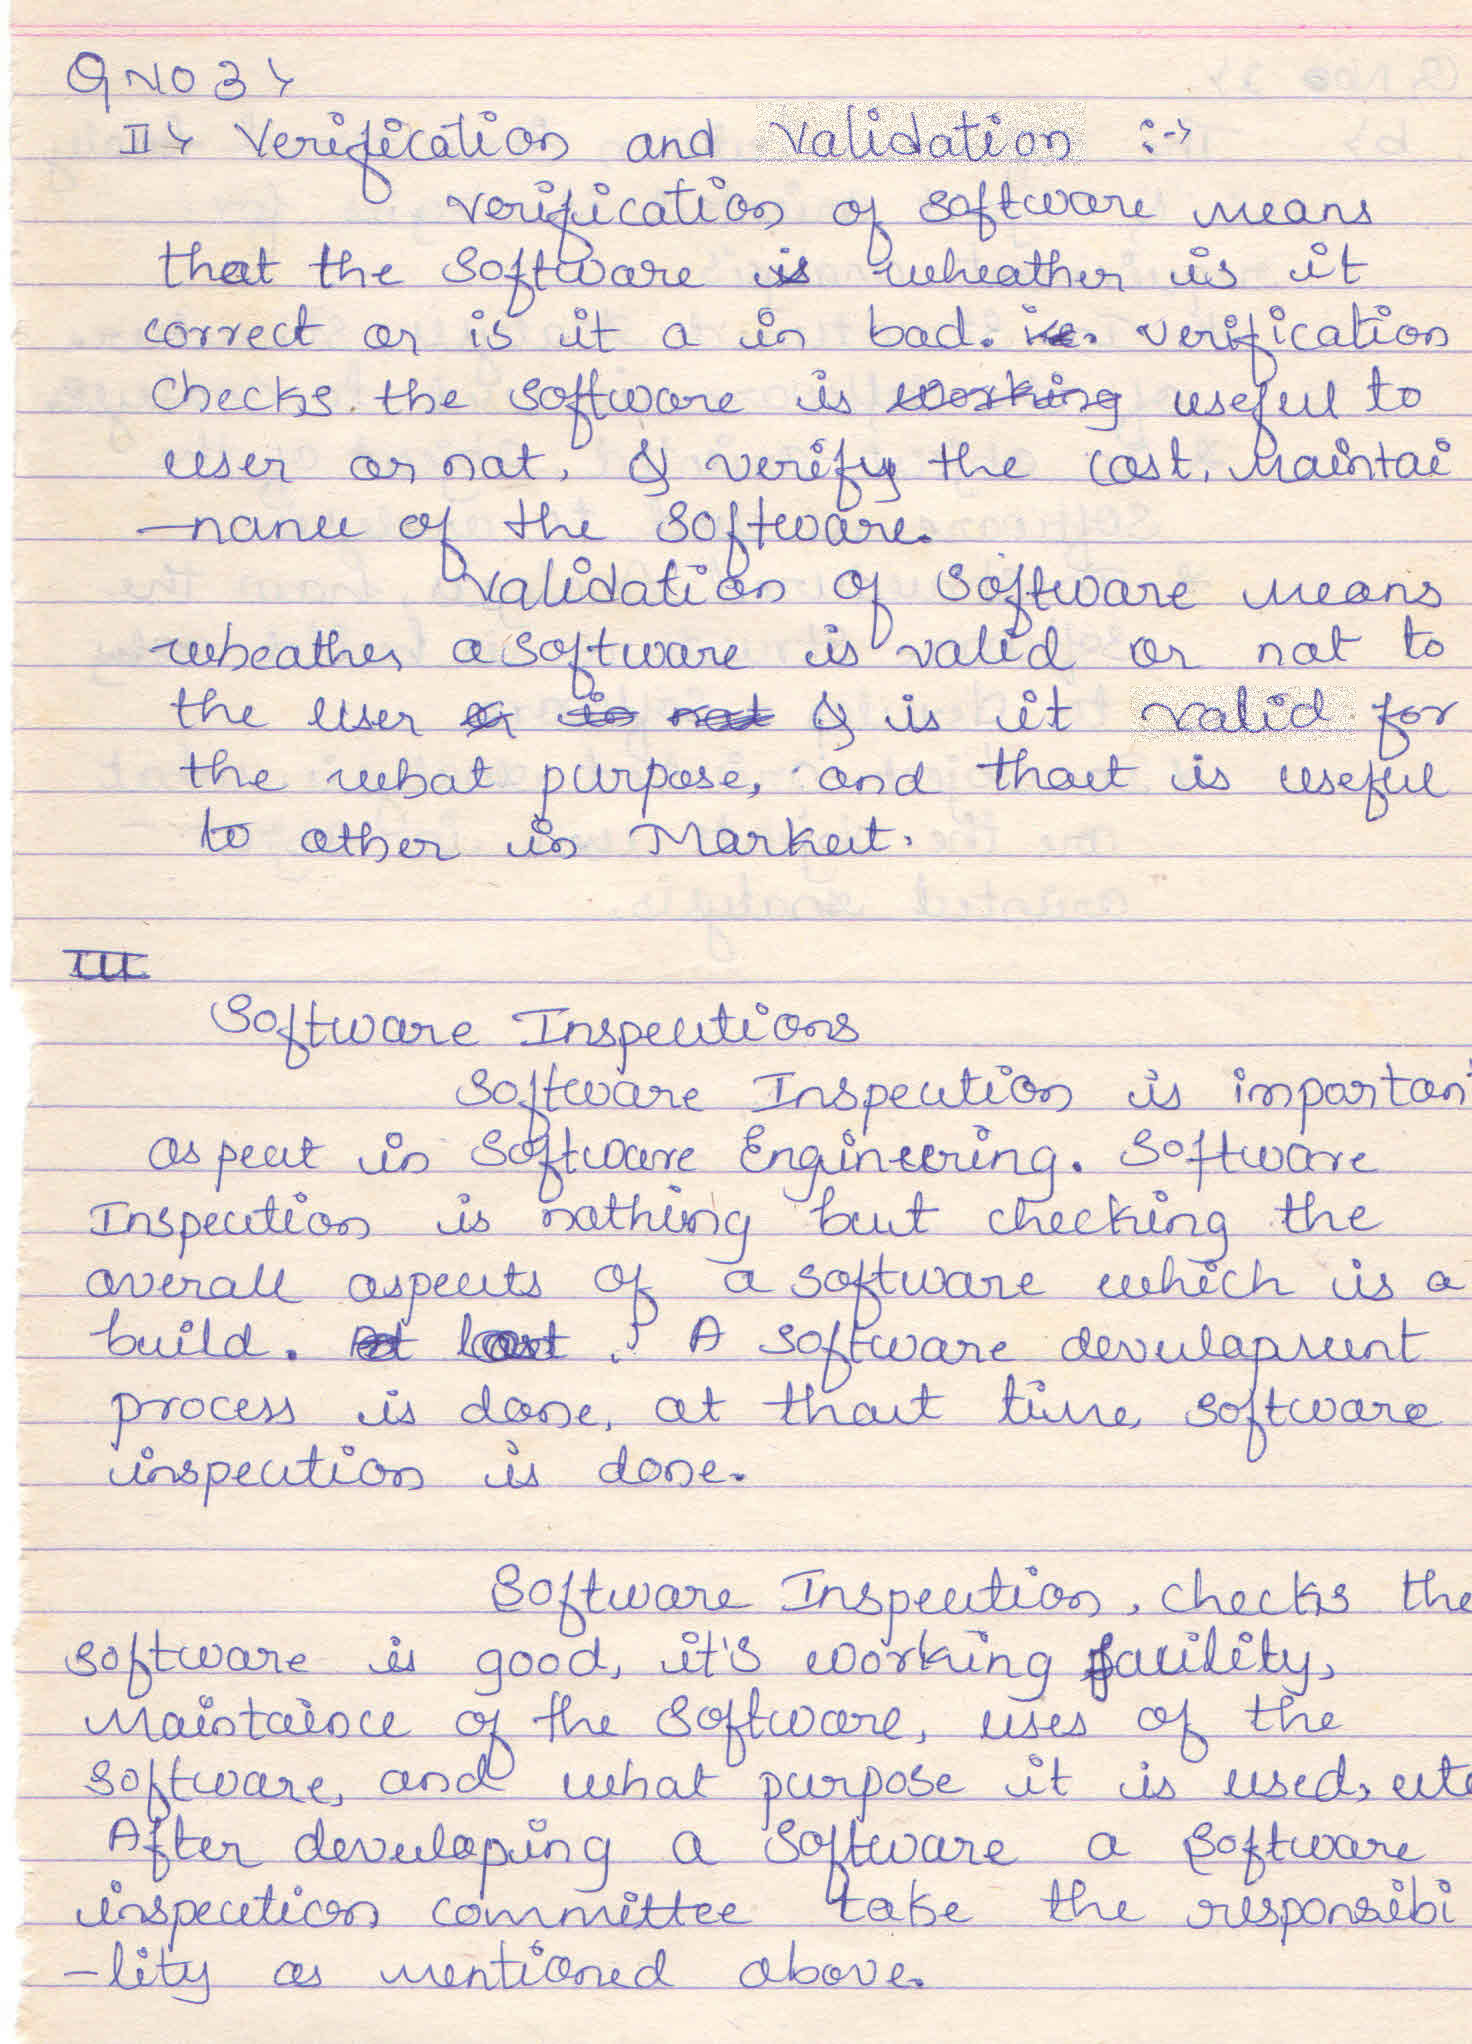 Q NO 3 >
II > Verification and Validation :->
Verification of software means
that the software is wheather is it
correct or is it a in bad. i.e. Verification
checks the software is working useful to
user or not, & verify the cost, Maintai
-nance of the software.
Validation of software means
wheather a software is valid or not to
the user or is not & is it valid for
the what purpose, and that is useful
to other in Market.
III
Software Inspections
Software Inspection is important
aspect in Software Engineering. Software
Inspection is nothing but checking the
overall aspects of a software which is a
build. At last. A software development
process is done, at that time software
inspection is done.
Software Inspection, checks the
software is good, it's working facility,
Maintaince of the software, uses of the
software, and what purpose it is used, etc
After developing a software a software
inspection committee take the responsibi
-lity as mentioned above.